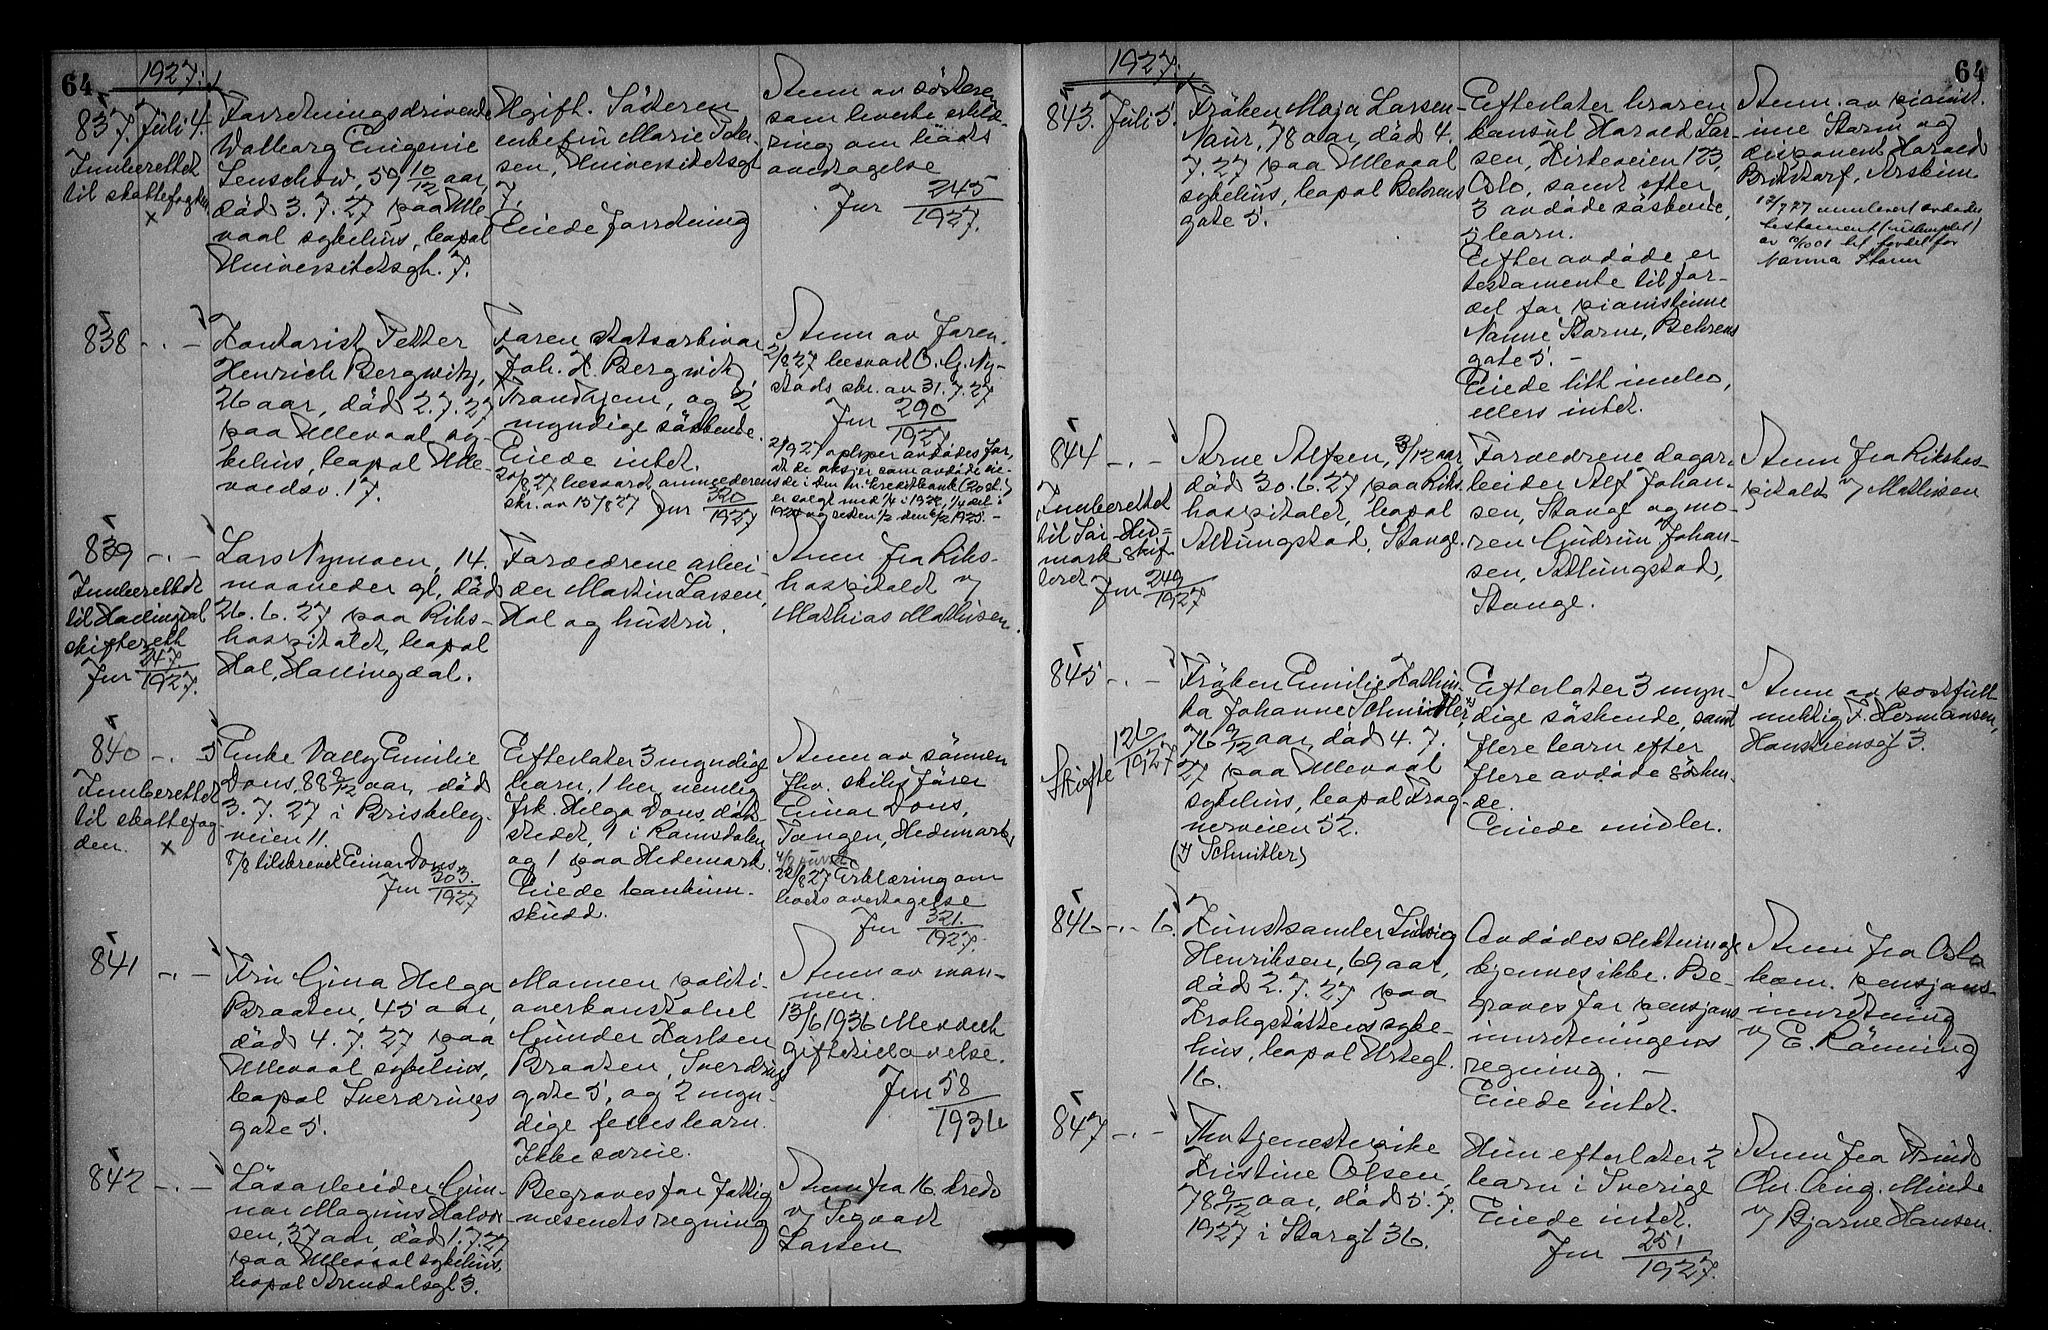 64
1927.
837. Juli 4.
Innberettet
til skattefogden
x
Forretningsdrivende
Walborg Eugenie
Lenschow, 59 10/12 aar,
död 3.7.27 paa Ulle-
vaal sykehus, bopæl
Universitetsgt. 7.
Ugift. Sösteren
enkefru Marie Sol
sen, Universitetsgt
7.
Eiede forretning
Anm av sösteren
som leverte erklæ-
ring om boets
overtagelse
Jnr 245/1927.
838 -.-
Kontorist Petter
Henrich Bergwitz,
26 aar, död 2.7.27
paa Ullevaal sy-
kehus, bopæl Ulle-
voldsv. 17.
Faren statsarkivar
Joh. K. Bergwitz,
Trondhjem, og 2
myndige söskende.
Eiede intet.
20/8 27 besvart anmelderens
skr. av 15/8 27 Jnr 320/1927
Anm av faren.
2/8 27 besvart O. G. Ny-
stads skr. av 31.7.27
Jnr 290/1927
2/9 27 oplyser avdödes far,
at de aksjer som avdöde eie-
de i Den nr. Creditbank (20 st.)
er solgt med 1/4 i 1922, 1/4 del i
1924 og resten 1/2 den 6/2 1925. -
839 -.-
Innberettet
til Hallingdal
skifterett
Jnr 247/1927.
Lars Nymoen, 14
maaneder gl, död
26.6.27 paa Riks-
hospitalet, bopæl
Hol, Hallingdal.
Forældrene arbei
der Martin Larsen,
Hol og hustru.
Anm fra Riks-
hospitalet v/
Mathias Mathisen.
840 -.- 5
Innberettet
til skattefog
den. x
Enke Vally Emilie
Dons, 88 9/12 aar, död
3.7.27 i Briskeby-
veien 11.
8/8 tilskrevet Einar Dons
Jnr 303/1927
Efterlater 3 myndige
barn, 1 her, nemlig
frk. Helga Dons, död-
stedet, 1 i Romsdalen
og 1 paa Hedemark.
Eiede bankinn-
skudd.
Anm av sönnen
fhv. skibsförer
Einar Dons,
Tangen, Hedemark
22/8 27 Erklæring om
boets overtagelse
Jnr 321/1927.
841 -.-
Fru Gina Helga
Braaten, 45 aar,
död 4.7.27 paa
Ullevaal sykehus,
bopæl Sverdrups
gate 5.
Mannen politi-
overkonstabel
Gunder Karlsen
Braaten, Sverdrups
gate 5, og 2 myn-
dige fellesbarn.
Ikke særeie.
Anm av man-
nen.
13/6 1936 Meddelt
giftetillatelse.
Jnr 58/1936
842 -.-
Lösarbeider Gun-
nar Magnus Halvor
sen, 37 aar, död 1.7.27
paa Ullevaal sykehus,
bopæl Arendalsgt 3.
Begraves for Fattig
væsenets regning
Anm fra 16. kreds
v/ Sigvart
Larsen
64
1927.
843. Juli 5.
Fröken Maja Larsen-
Naur, 78 aar, död 4.
7.27 paa Ullevaal
sykehus, bopæl Behrens
gate 5.
Efterlater broren
konsul Harald Lar-
sen, Kirkeveien 123,
Oslo, samt efter
3 avdöde söskende,
5 barn.
Efter avdöde er
testamente til for-
del for pianistinne
Nanna Storm, Behrens
gate 5. -
Eiede litt innbo,
ellers intet.
Anm. av pianist-
inne Storm og
disponent Harald
Askim
12/7 27 innlevert avdödes
testament
til fordel for
Nanna Storm
844 -.-
Innberettet
til Sör-Hed-
mark skif
terett
Jnr 249/1927
Arne Alfsen, 3/12 aar,
död 30.6.27 paa Riks
hospitalet, bopæl
Atlungstad, Stange.
Forældrene dagar-
beider Alf Johan-
sen, Stange og mo-
ren Gudrun Johan-
sen, Atlungstad,
Stange.
Anm fra Rikshos-
pitalet v/ Mathisen
845 -.-
Skifte 126/1927
Fröken Emilie Kathin-
ka Johanne Schmidtler, x)
76 9/12 aar, död 4.7.
27 paa Ullevaal
sykehus, bopæl Frog-
nerveien 52.
(x) Schnitler)
Efterlater 3 myn-
dige söskende, samt
flere barn efter
flere avdöde sösken-
de.
Eiede midler.
Anm av postfull-
mektig F. Hermansen,
3.
846 -.- 6.
Kunstsamler Ludvig
Henriksen, 69 aar,
död 2.7.27 paa
Krohgstöttens syke-
hus, bopæl Urtegt.
16.
Avdödes slektninge
kjennes ikke. Be-
graves for pensjons
innretningens
regning. -
Eiede intet.
Anm fra Oslo
kom. pensjons-
innretning
v/ E. Rönning
847 -.-
Fhv tjenestepike
Kristine Olsen,
78 9/12 aar, död 5.7.
1927 i Storgt 36.
Hun efterlater 2
barn i Sverige
Eiede intet.
Jnr 251/1927.
Anm fra
Chr. Aug. Minde
v/ Bjarne Hansen.